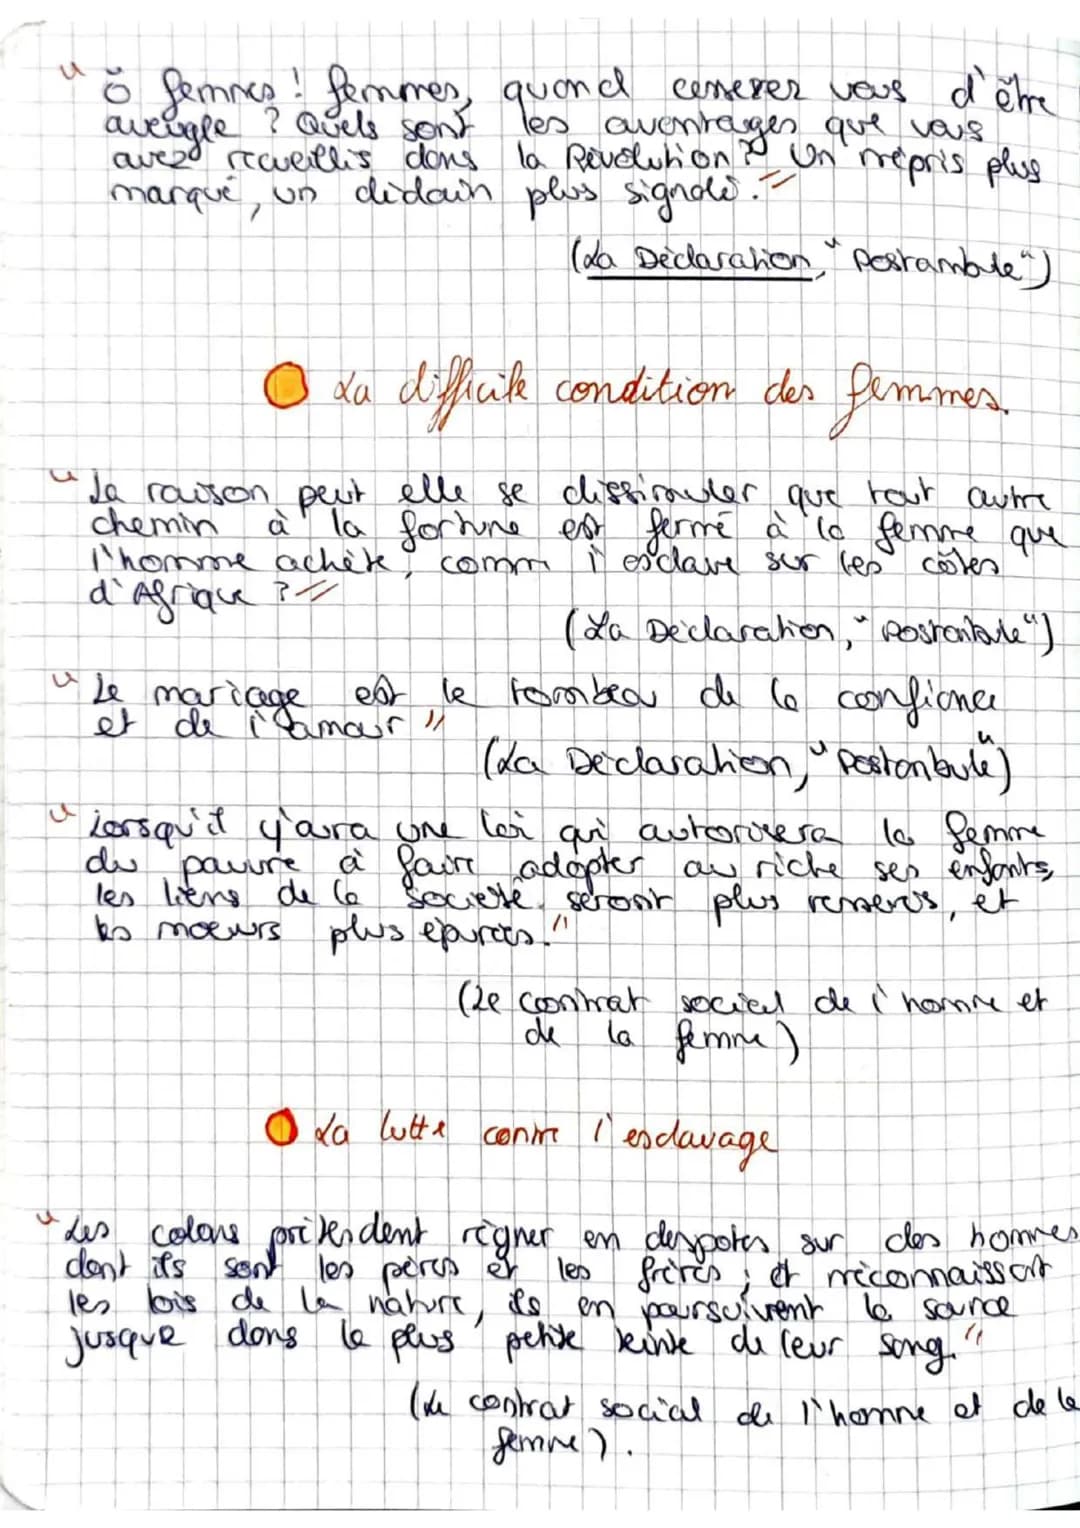 "ô femmes ! femmes, quand cesserez vous d'être
aveugle ? Quels sont les aventrages que vous
avez recueillis dans la Révolution ? Un mépris plus
marqué, un dédain plus signalé."
(La Déclaration, "Postambule")
La difficile condition des femmes.
"La raison peut elle se dissimuler que tout autre
chemin à la fortune est fermé à la femme que
l'homme achète, comm l'esclave sur les côtes
d'Afrique ?"
(La Déclaration, "Postambule")
"Le mariage est le tombeau de la confiance
et de l'amour"
(La Déclaration, "Postambule")
"Lorsqu'il y'aura une loi qui autorisera la femme
du pauvre à faire adopter au riche ses enfants,
les liens de la société seront plus resserrés, et
les moeurs plus épurées."
(Le contrat social de l'homme et
de la femme)
La lutte contre l'esclavage
"Les colons prétendent régner en despotes sur des hommes
dont ils sont les pères et les frères ; et méconnaissant
les lois de la nature, ils en poursuivent la source
jusque dans la plus petite teinte de leur sang."
(Le contrat social de l'homme et de la
femme).